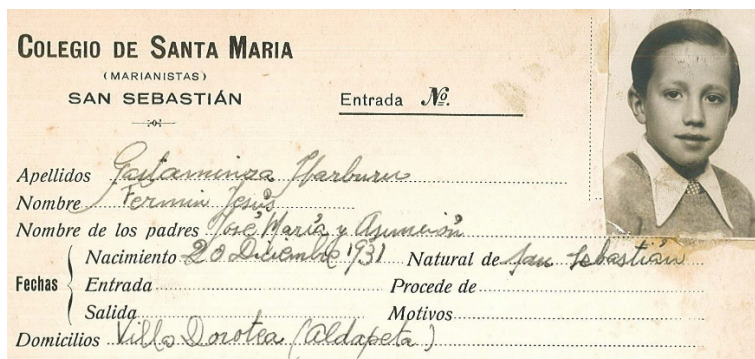 COLEGIO DE SANTA MARIA
(MARIANISTAS)
SAN SEBASTIÁN
Entrada Nº.
Apellidos Gaztaminza Ibarburu
Nombre Fermin Jesús
Nombre de los padres José María y Asunción
Nacimiento 20 Diciembre 1931 Natural de San Sebastián
Fechas Entrada Procede de
Salida Motivos
Domicilios Villa Dorotea (Aldapeta)